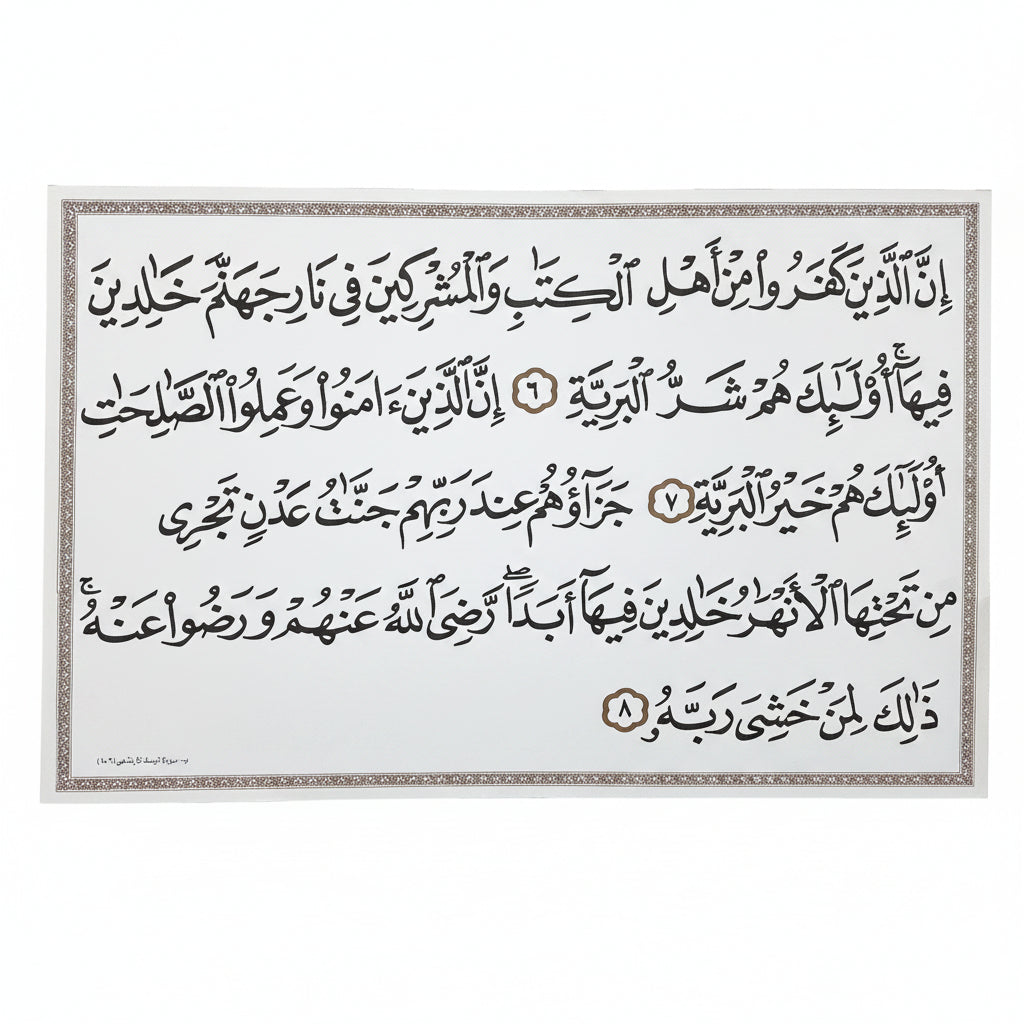 إِنَّ ٱلَّذِينَ كَفَرُوا۟ مِنْ أَهْلِ ٱلْكِتَٰبِ وَٱلْمُشْرِكِينَ فِى نَارِ جَهَنَّمَ خَٰلِدِينَ
فِيهَآ ۚ أُو۟لَٰٓئِكَ هُمْ شَرُّ ٱلْبَرِيَّةِ ٦ إِنَّ ٱلَّذِينَ ءَامَنُوا۟ وَعَمِلُوا۟ ٱلصَّٰلِحَٰتِ
أُو۟لَٰٓئِكَ هُمْ خَيْرُ ٱلْبَرِيَّةِ ٧ جَزَآؤُهُمْ عِندَ رَبِّهِمْ جَنَّٰتُ عَدْنٍ تَجْرِى
مِن تَحْتِهَا ٱلْأَنْهَٰرُ خَٰلِدِينَ فِيهَآ أَبَدًا ۖ رَّضِىَ ٱللَّهُ عَنْهُمْ وَرَضُوا۟ عَنْهُ ۚ
ذَٰلِكَ لِمَنْ خَشِىَ رَبَّهُۥ ٨